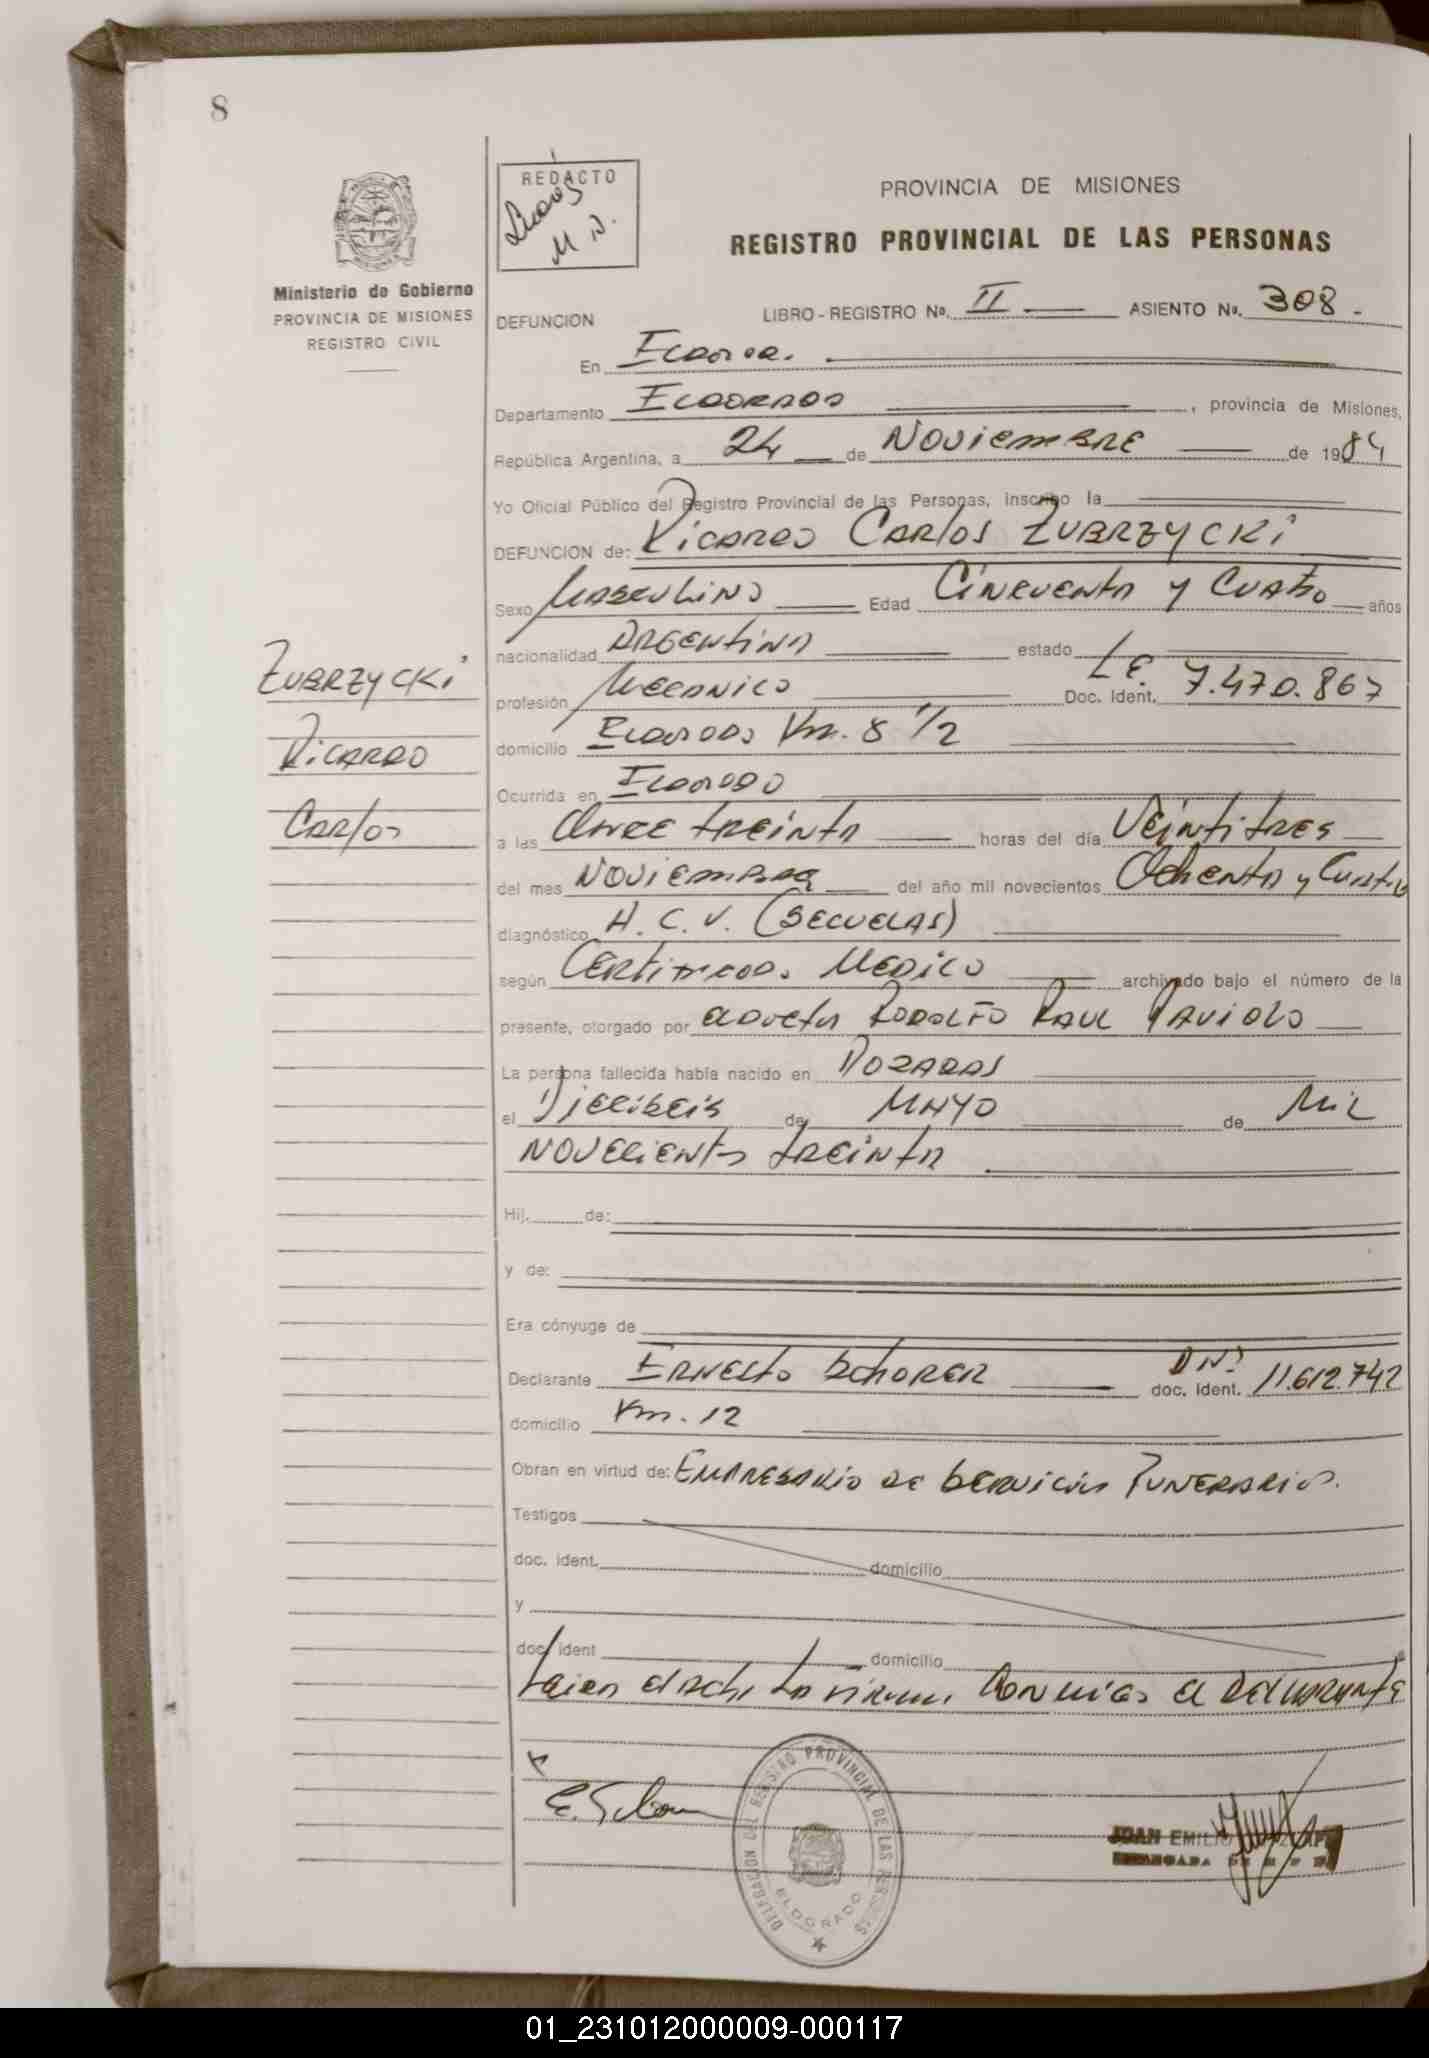 8
REDACTO
M N.
PROVINCIA DE MISIONES
REGISTRO PROVINCIAL DE LAS PERSONAS
Ministerio de Gobierno
PROVINCIA DE MISIONES
REGISTRO CIVIL
LIBRO - REGISTRO Nº. II — ASIENTO Nº. 308 -
DEFUNCION
En Eldorado.
Departamento ELDORADO, provincia de Misiones,
República Argentina, a 24 de NOVIEMBRE de 1984
Yo Oficial Público del Registro Provincial de las Personas, inscribo la
DEFUNCION de: Ricardo Carlos ZUBRZYCKI
Sexo Masculino Edad Cincuenta y Cuatro años
nacionalidad ARGENTINA estado
profesión Mecanico L.E. Doc. Ident. 7.470.867
domicilio Eldorado Km. 8 1/2
Ocurrida en Eldorado
a las Once treinta horas del día Veintitres
del mes NOVIEMBRE del año mil novecientos Ochenta y Cuatro
diagnóstico A. C. V. (SECUELAS)
según Certificado Medico archivado bajo el número de la
presente, otorgado por doctor RODOLFO RAUL
La persona fallecida había nacido en POSADAS
el Dieciseis de MAYO de Mil
NOVECIENTOS treinta
Hij. de:
y de:
Era cónyuge de
Declarante ERNESTO SCHORER DNI doc. ident. 11.612.742
domicilio Km. 12
Obran en virtud de: EMPRESARIO DE SERVICIOS FUNERARIOS.
Testigos
doc. ident. domicilio
y
doc. ident domicilio
Leida el acta la firma Conmigo el Declarante
ZUBRZYCKI
Ricardo
Carlos
DELEGACION DEL REGISTRO PROVINCIAL DE LAS PERSONAS
ELDORADO
JUAN EMILIO
01_231012000009-000117